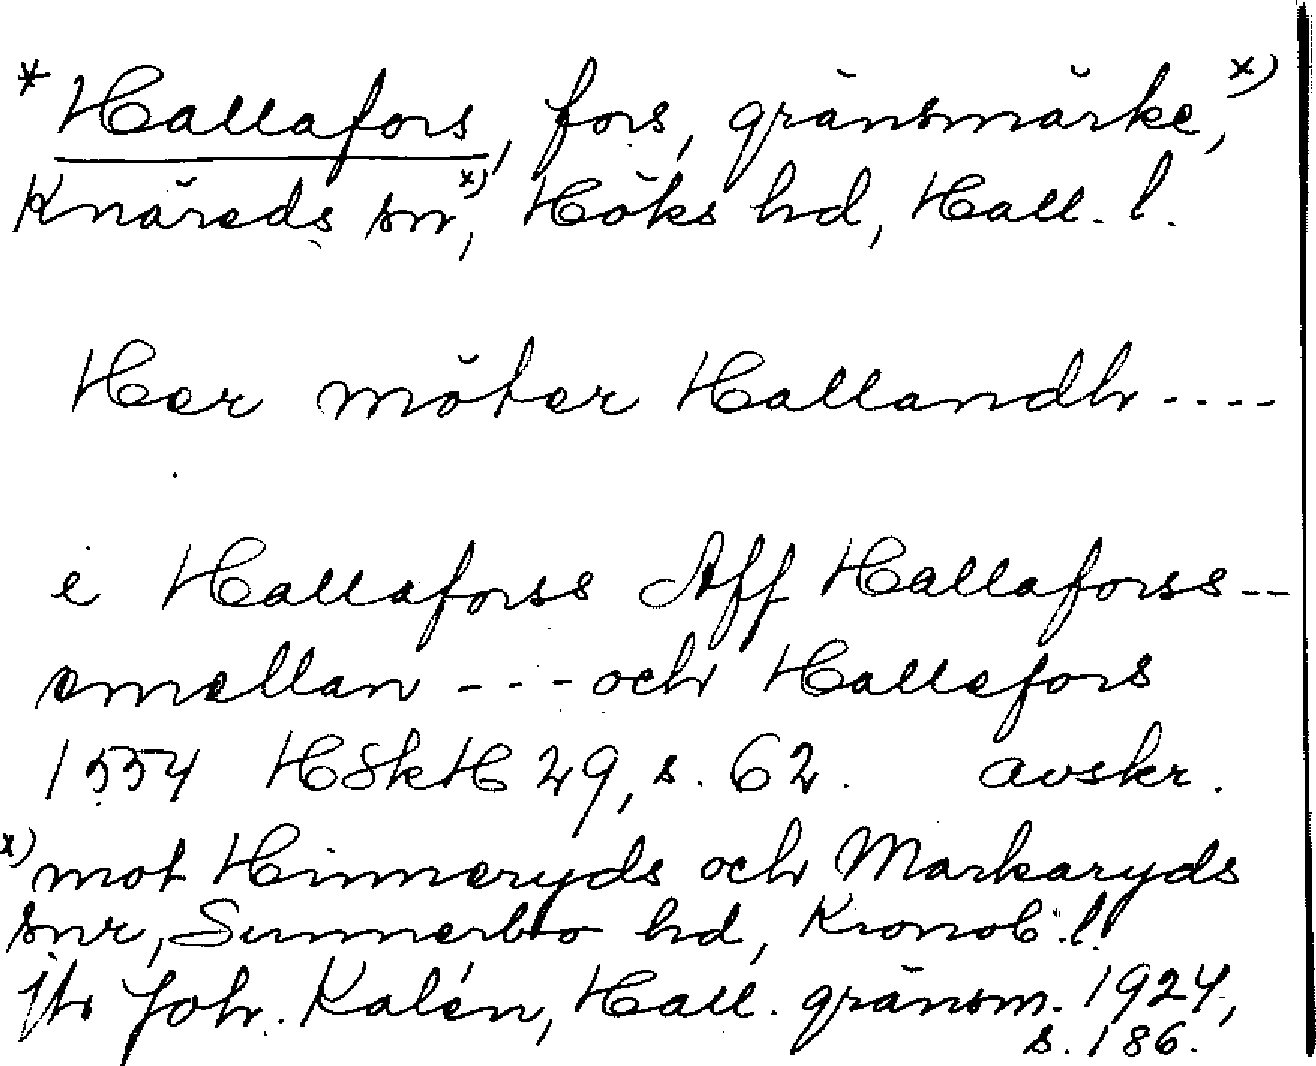 *Hallafors, fors, gränsmärke,x)
Knäreds sn,x) Höks hd, Hall. l.
Her möter Hallandh ----
i Hallaforss Aff Hallaforss--
emellan --- och Hallefors
1554 HSkH 29, s. 62. avskr.
x) mot Hinneryds och Markaryds
snr, Sunnerbo hd, Kronob. l.
jfr Joh. Kalén, Hall. gränsm. 1924,
s. 186.